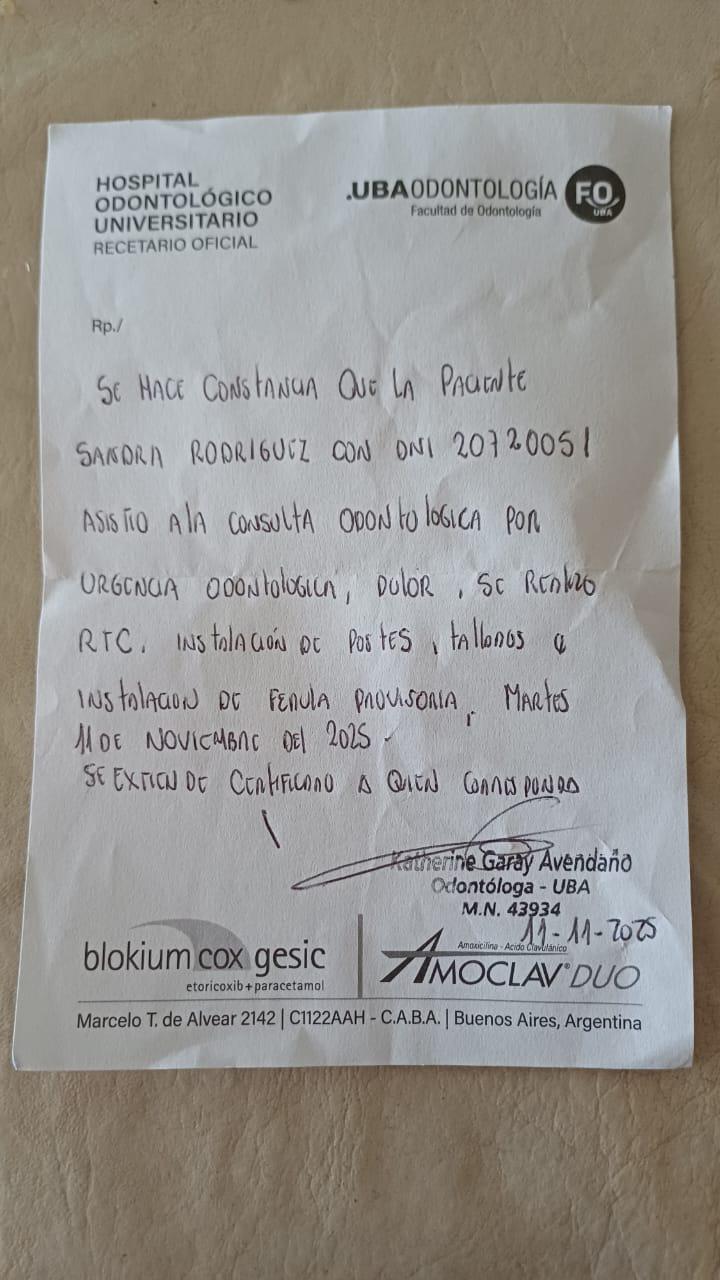 HOSPITAL
ODONTOLÓGICO
UNIVERSITARIO
RECETARIO OFICIAL
.UBAODONTOLOGÍA
Facultad de Odontología
FO
UBA
Rp./
SE HACE CONSTANCIA QUE LA PACIENTE
SANDRA RODRIGUEZ CON DNI 20720051
ASISTIO A LA CONSULTA ODONTOLOGICA POR
URGENCIA ODONTOLOGICA, DOLOR, SE REALIZO
RTC, INSTALACIÓN DE POSTES, TALLADOS e
INSTALACION DE FERULA PROVISORIA, MARTES
11 DE NOVIEMBRE DEL 2025.
SE EXTIENDE CERTIFICADO A QUIEN CORRESPONDA
Katherine Garay Avendaño
Odontóloga - UBA
M.N. 43934
11-11-2025
blokium cox gesic
etoricoxib+paracetamol
Amoxicilina - Acido Clavulánico
AMOCLAV® DUO
Marcelo T. de Alvear 2142 | C1122AAH - C.A.B.A. | Buenos Aires, Argentina